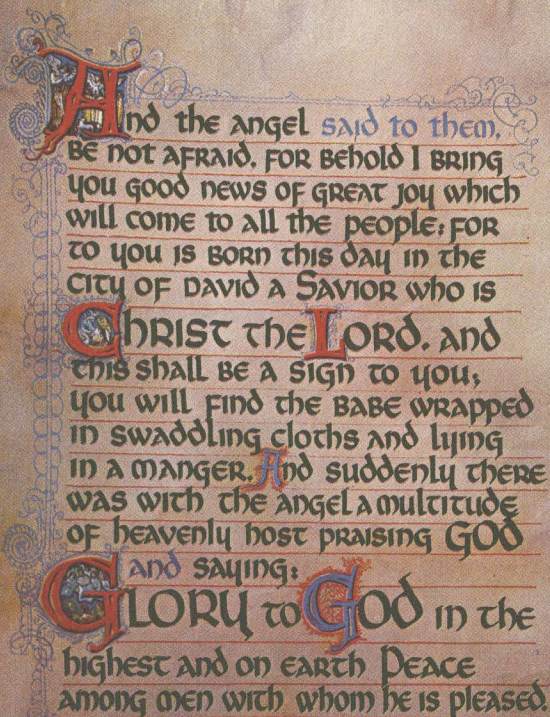 And the angel said to them,
Be not afraid. For behold I bring
you good news of great joy which
will come to all the people; for
to you is born this day in the
city of David a Savior who is
Christ the Lord. and
this shall be a sign to you;
you will find the babe wrapped
in swaddling cloths and lying
in a manger. And suddenly there
was with the angel a multitude
of heavenly host praising GOD
and saying:
Glory to God in the
highest and on earth Peace
among men with whom he is pleased.